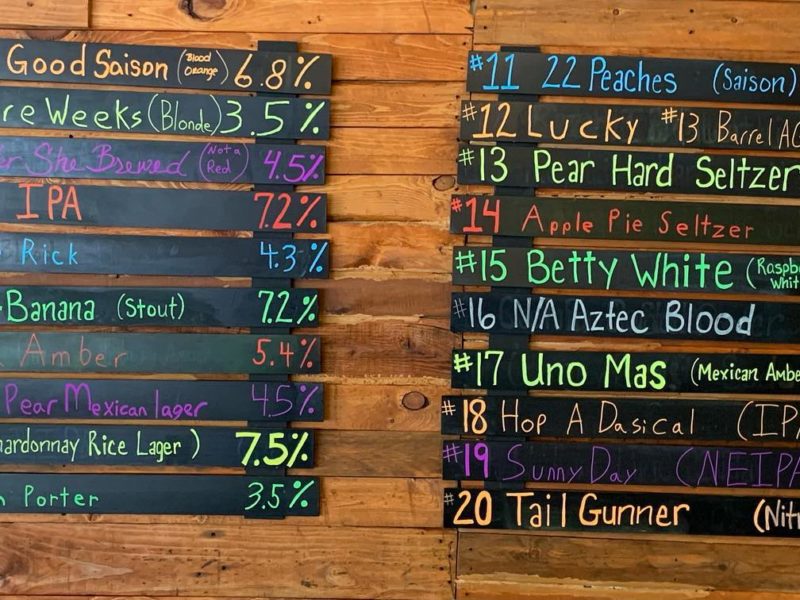 Good Saison (Blood Orange) 6.8%
re Weeks (Blonde) 3.5%
er She Brewed (Not a Red) 4.5%
IPA 7.2%
Rick 4.3%
Banana (Stout) 7.2%
Amber 5.4%
Pear Mexican lager 4.5%
hardonnay Rice Lager) 7.5%
Porter 3.5%
#11 22 Peaches (Saison)
#12 Lucky #13 Barrel A
#13 Pear Hard Seltzer
#14 Apple Pie Seltzer
#15 Betty White (Raspb Whit
#16 N/A Aztec Blood
#17 Uno Mas (Mexican Ambe
#18 Hop A Dasical (IP
#19 Sunny Day (NEIPA
#20 Tail Gunner (Nit